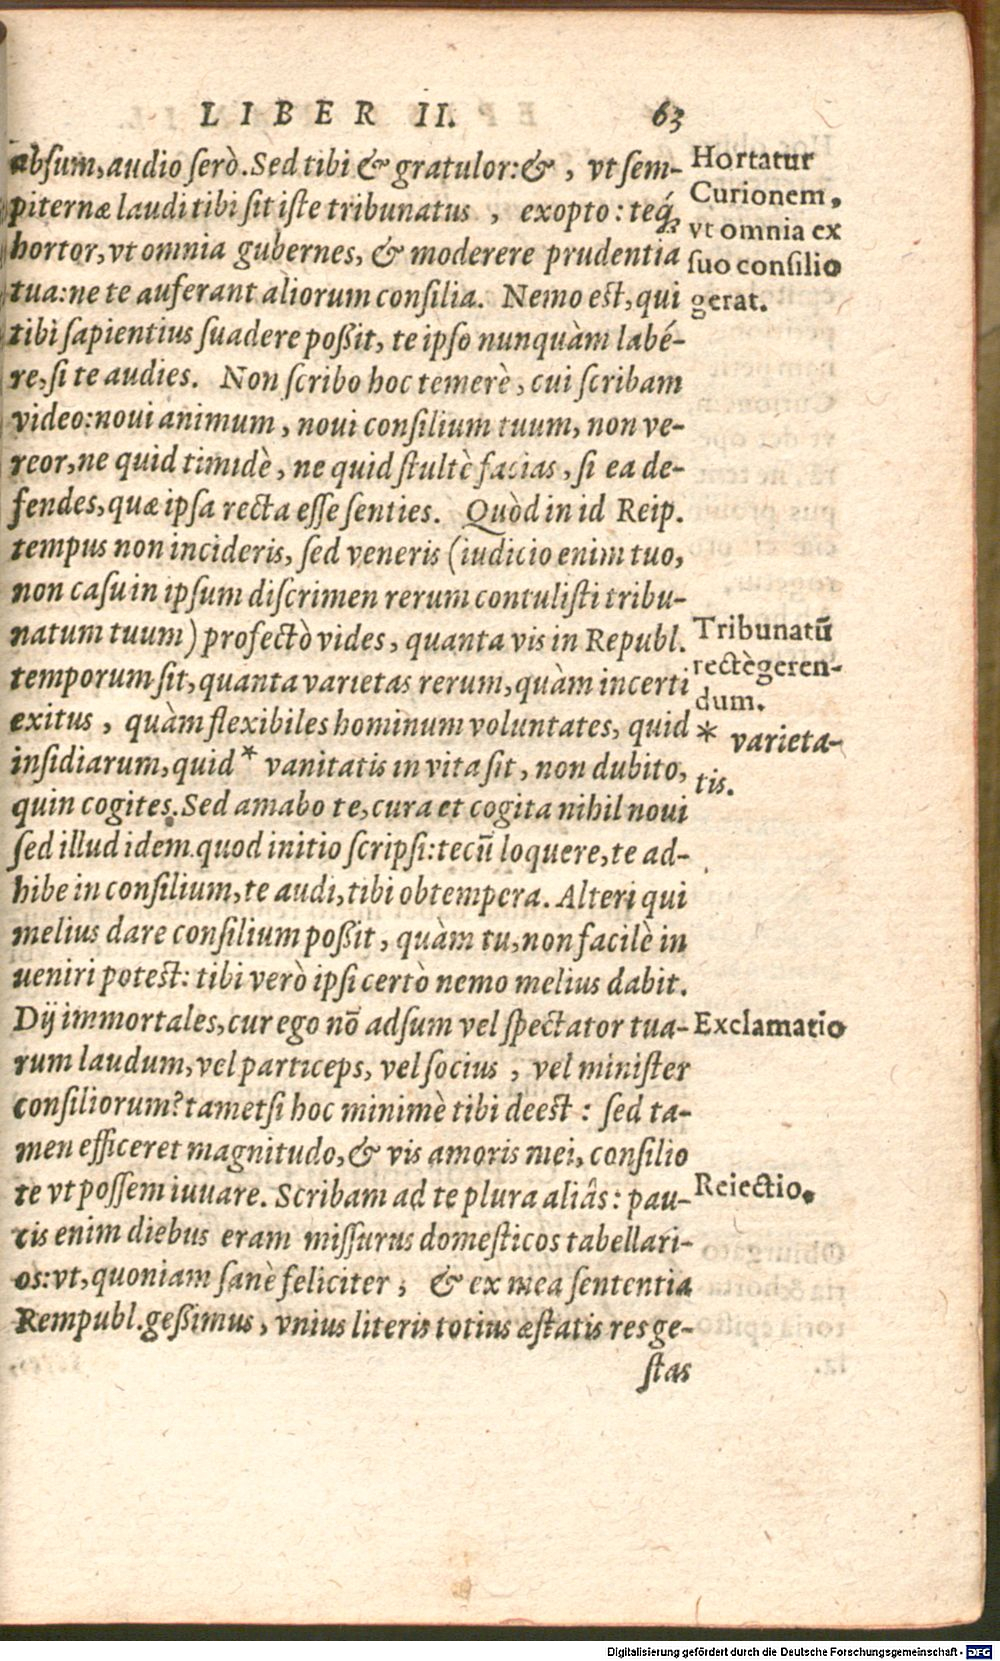 LIBER II. 63
absum, audio serò. Sed tibi & gratulor: &, vt sem-
piternæ laudi tibi sit iste tribunatus, exopto: teq́;
hortor, vt omnia gubernes, & moderere prudentia
tua: ne te auferant aliorum consilia. Nemo est, qui
tibi sapientius suadere poßit, te ipso nunquàm labé-
re, si te audies. Non scribo hoc temerè, cui scribam
video: noui animum, noui consilium tuum, non ve-
reor, ne quid timidè, ne quid stultè facias, si ea de-
fendes, quæ ipsa recta esse senties. Quòd in id Reip.
tempus non incideris, sed veneris (iudicio enim tuo,
non casu in ipsum discrimen rerum contulisti tribu-
natum tuum) profectò vides, quanta vis in Republ.
temporum sit, quanta varietas rerum, quàm incerti
exitus, quàm flexibiles hominum voluntates, quid
insidiarum, quid * vanitatis in vita sit, non dubito,
quin cogites. Sed amabo te, cura et cogita nihil noui
sed illud idem quod initio scripsi: tecū loquere, te ad-
hibe in consilium, te audi, tibi obtempera. Alteri qui
melius dare consilium poßit, quàm tu, non facilè in
ueniri potest: tibi verò ipsi certò nemo melius dabit.
Dij immortales, cur ego nō adsum vel spectator tua-
rum laudum, vel particeps, vel socius, vel minister
consiliorum? tametsi hoc minimè tibi deest: sed ta-
men efficeret magnitudo, & vis amoris mei, consilio
te vt possem iuuare. Scribam ad te plura aliâs: pau-
cis enim diebus eram missurus domesticos tabellari-
os: vt, quoniam sanè feliciter, & ex mea sententia
Rempubl. geßimus, vnius literis totius æstatis res ge-
stas
Hortatur
Curionem,
vt omnia ex
suo consilio
gerat.
Tribunatū
rectè geren-
dum.
* varieta-
tis.
Exclamatio
Reiectio.
Digitalisierung gefördert durch die Deutsche Forschungsgemeinschaft - DFG